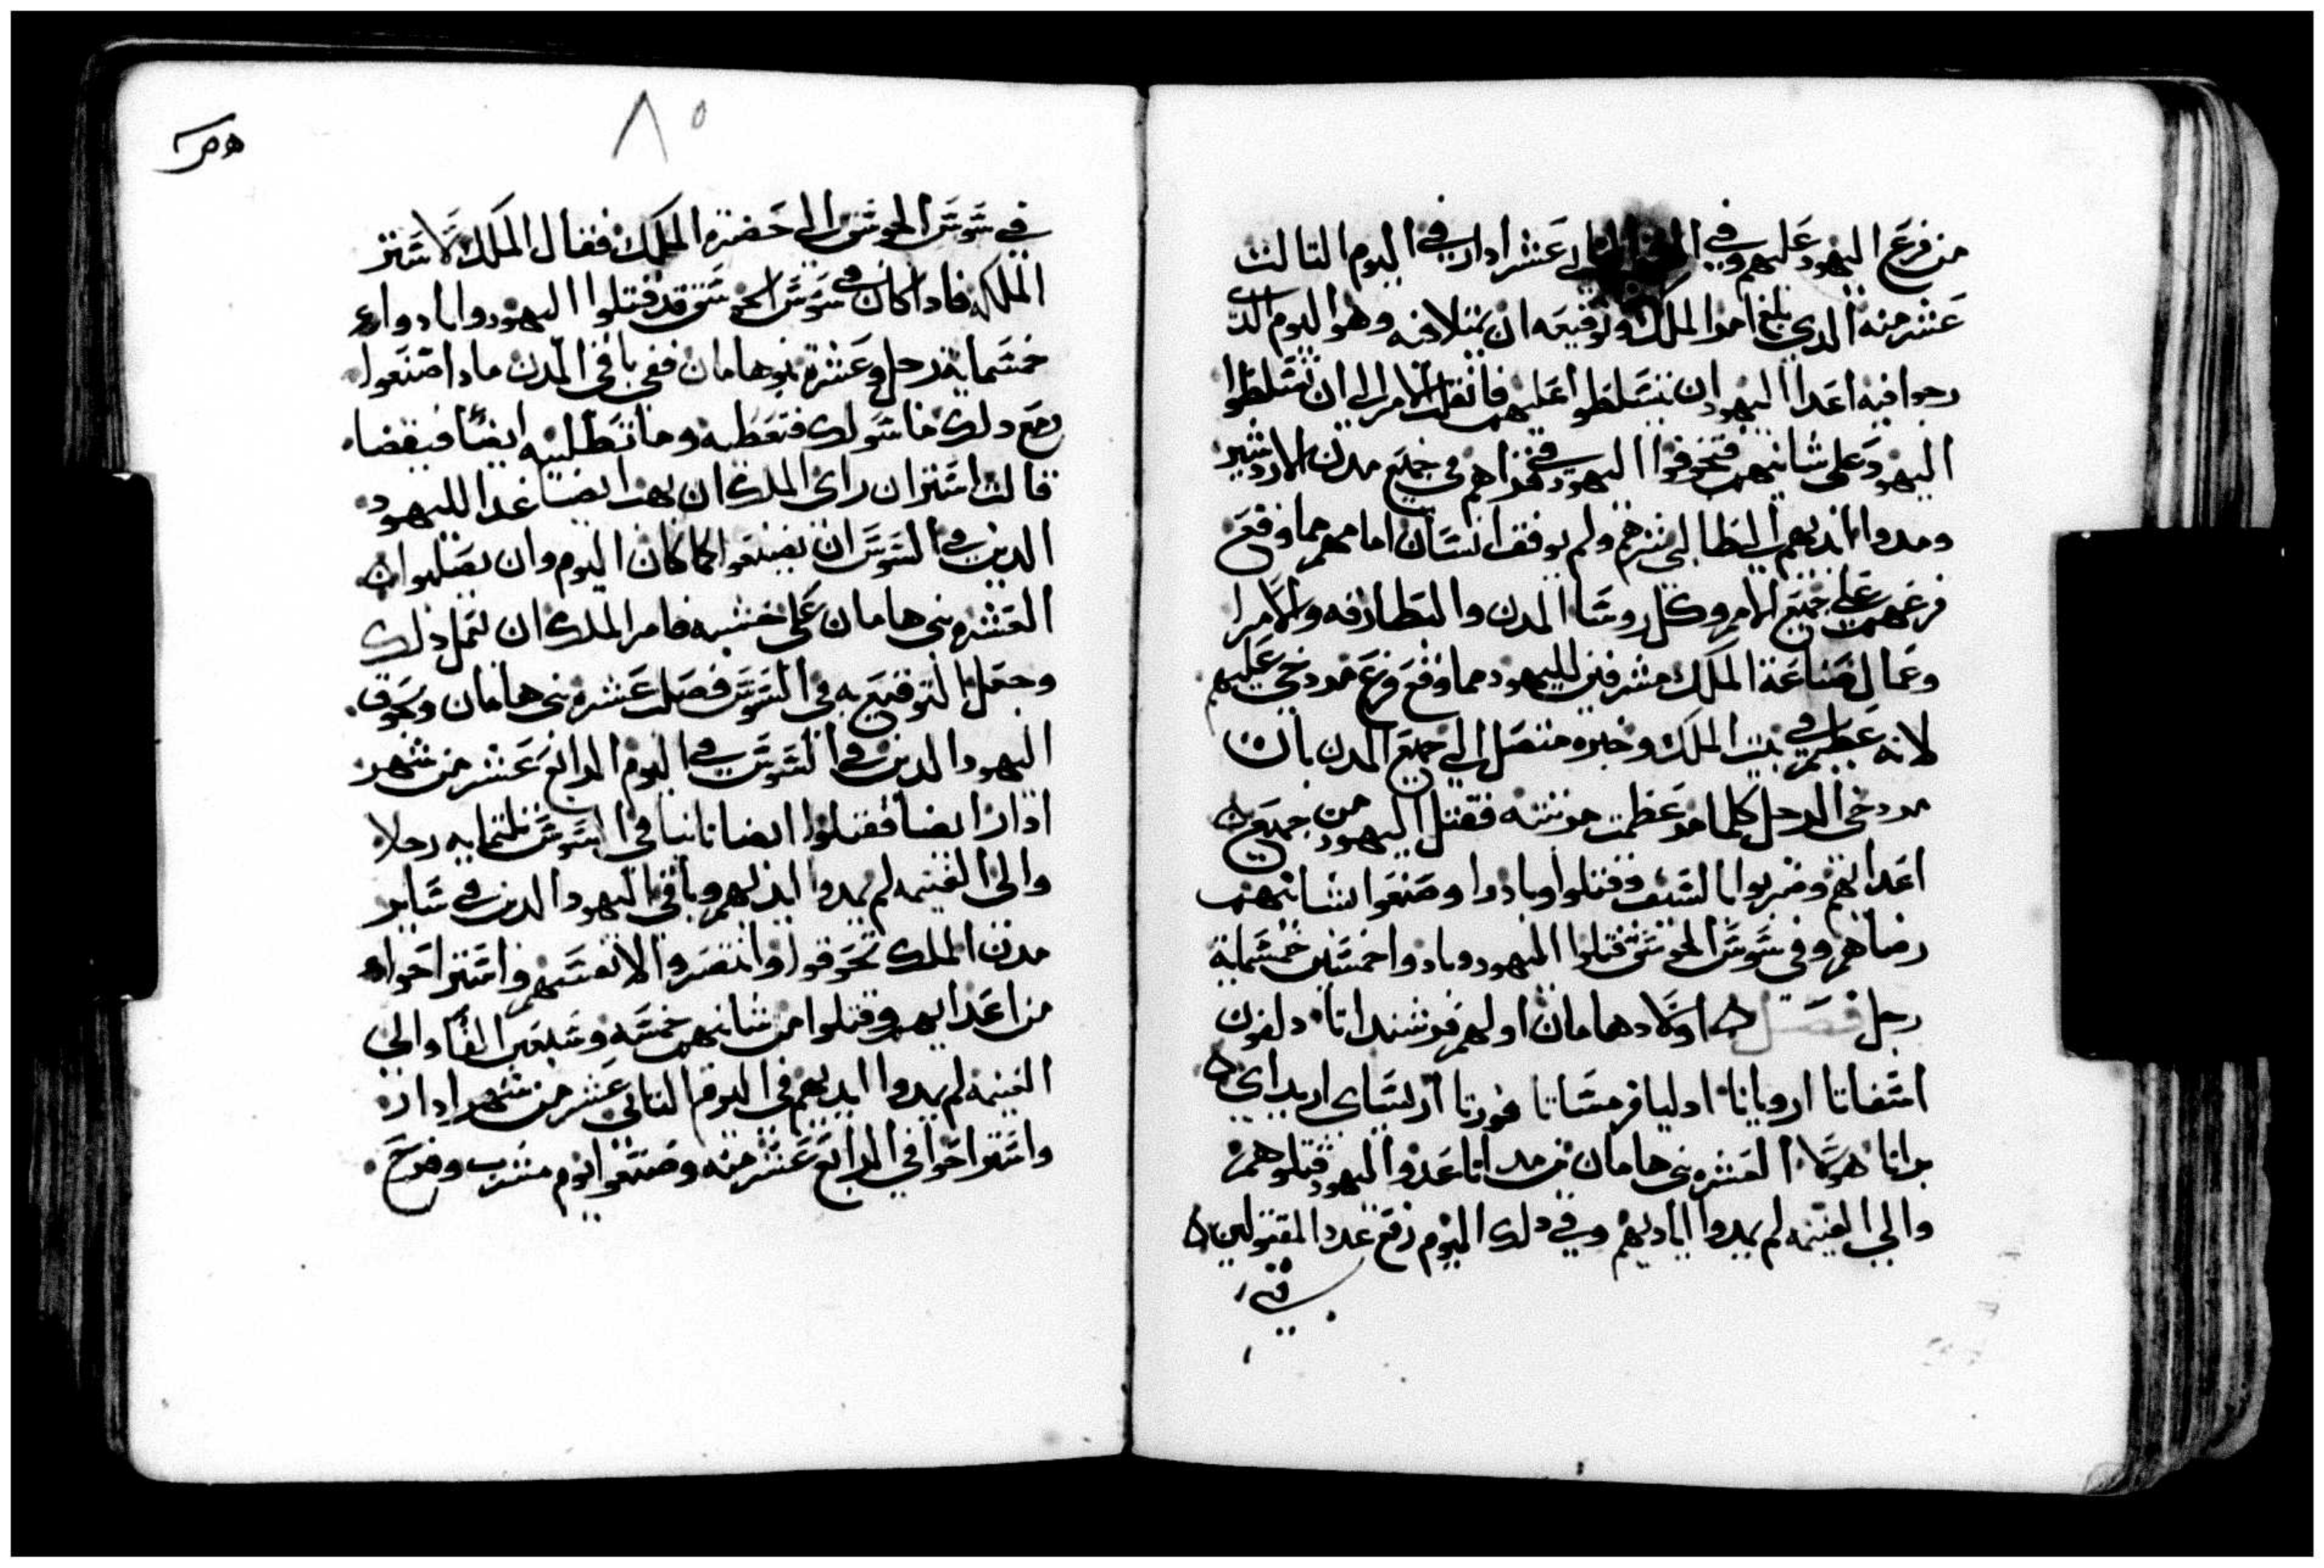 من فزع اليهود عليهم وفي الشهر الثاني عشر ادار في اليوم التالت
عشر منه الدي بلغ امر الملك وتوقيعه ان يمتلا فيه وهو اليوم الدي
رجوا فيه اعدا اليهود ان يتسلطوا عليهم فانقلب الامر الى ان تسلطوا
اليهود على شانيهم فتجوقوا اليهود في قراهم في جميع مدن الازدشير
ومدوا ايديهم الى طالبي شرهم ولم يوقف انسان امامهم مما وقع
فزعهم على جميع الامم وكل روسا المدن والبطارقه والامرا
وعمال صناعة الملك مشرفين لليهود مما وقع فزع مردخي عليهم
لانه عظيم في بيت الملك وخبره متصل الى جميع المدن بان
مردخي الرجل كلما مر عظمت مرتبته فقتل اليهود من جميع
اعدايهم وضربوا بالسيف وقتلوا وبادوا وصنعوا بشانيهم
رضاهم وفي سوس الجوسق قتلوا اليهود وبادوا خمسين خمسماية
رجل فصل اولاد هامان اولهم فرشنداتا دلفون
اسفاتا اروياتا ادليا فرمساتا فورتا اريساي اريداي
يزاتا هولا العشره بني هامان بن همداتا عدو اليهود قتلوهم
والي الغنيمه لم يمدوا اياديهم وفي دلك اليوم رفع عدد المقتولين
في
٨٥
في سوس الجوسق الي حضرة الملك فقال الملك لاستر
الملكه فادا كان في سوس الجوسق قد قتلوا اليهود وابادوا
خمسماية رجل وعشرة بنو هامان ففي باقي المدن مادا صنعوا
ومع دلك ما سولك فتعطيه وما تطلبيه ايضا فيقضا
قالت استر ان راى الملك ان يهب ايضا غدا لليهود
الدين في السوس ان يصنعوا كما كان اليوم وان يصلبوا
العشره بني هامان على خشبه فامر الملك ان تعمل دلك
وجعل التوقيع به في السوس فصلب عشره بني هامان وتجوق
اليهود الدين في السوس في اليوم الرابع عشر من شهر
ادار ايضا فقتلوا ايضا تانيا في السوس تلتمايه رجلا
والى الغنيمه لم يمدوا ايديهم وباقي اليهود الدين في ساير
مدن الملك تجوقوا وانتصروا لانفسهم واستراحوا
من اعدايهم وقتلوا من شانيهم خمسه وسبعين الفا والي
الغنيمه لم يمدوا ايديهم في اليوم التالت عشر من شهر ادار
واستراحوا في الرابع عشر منه وصنعوا يوم مشرب وفرح